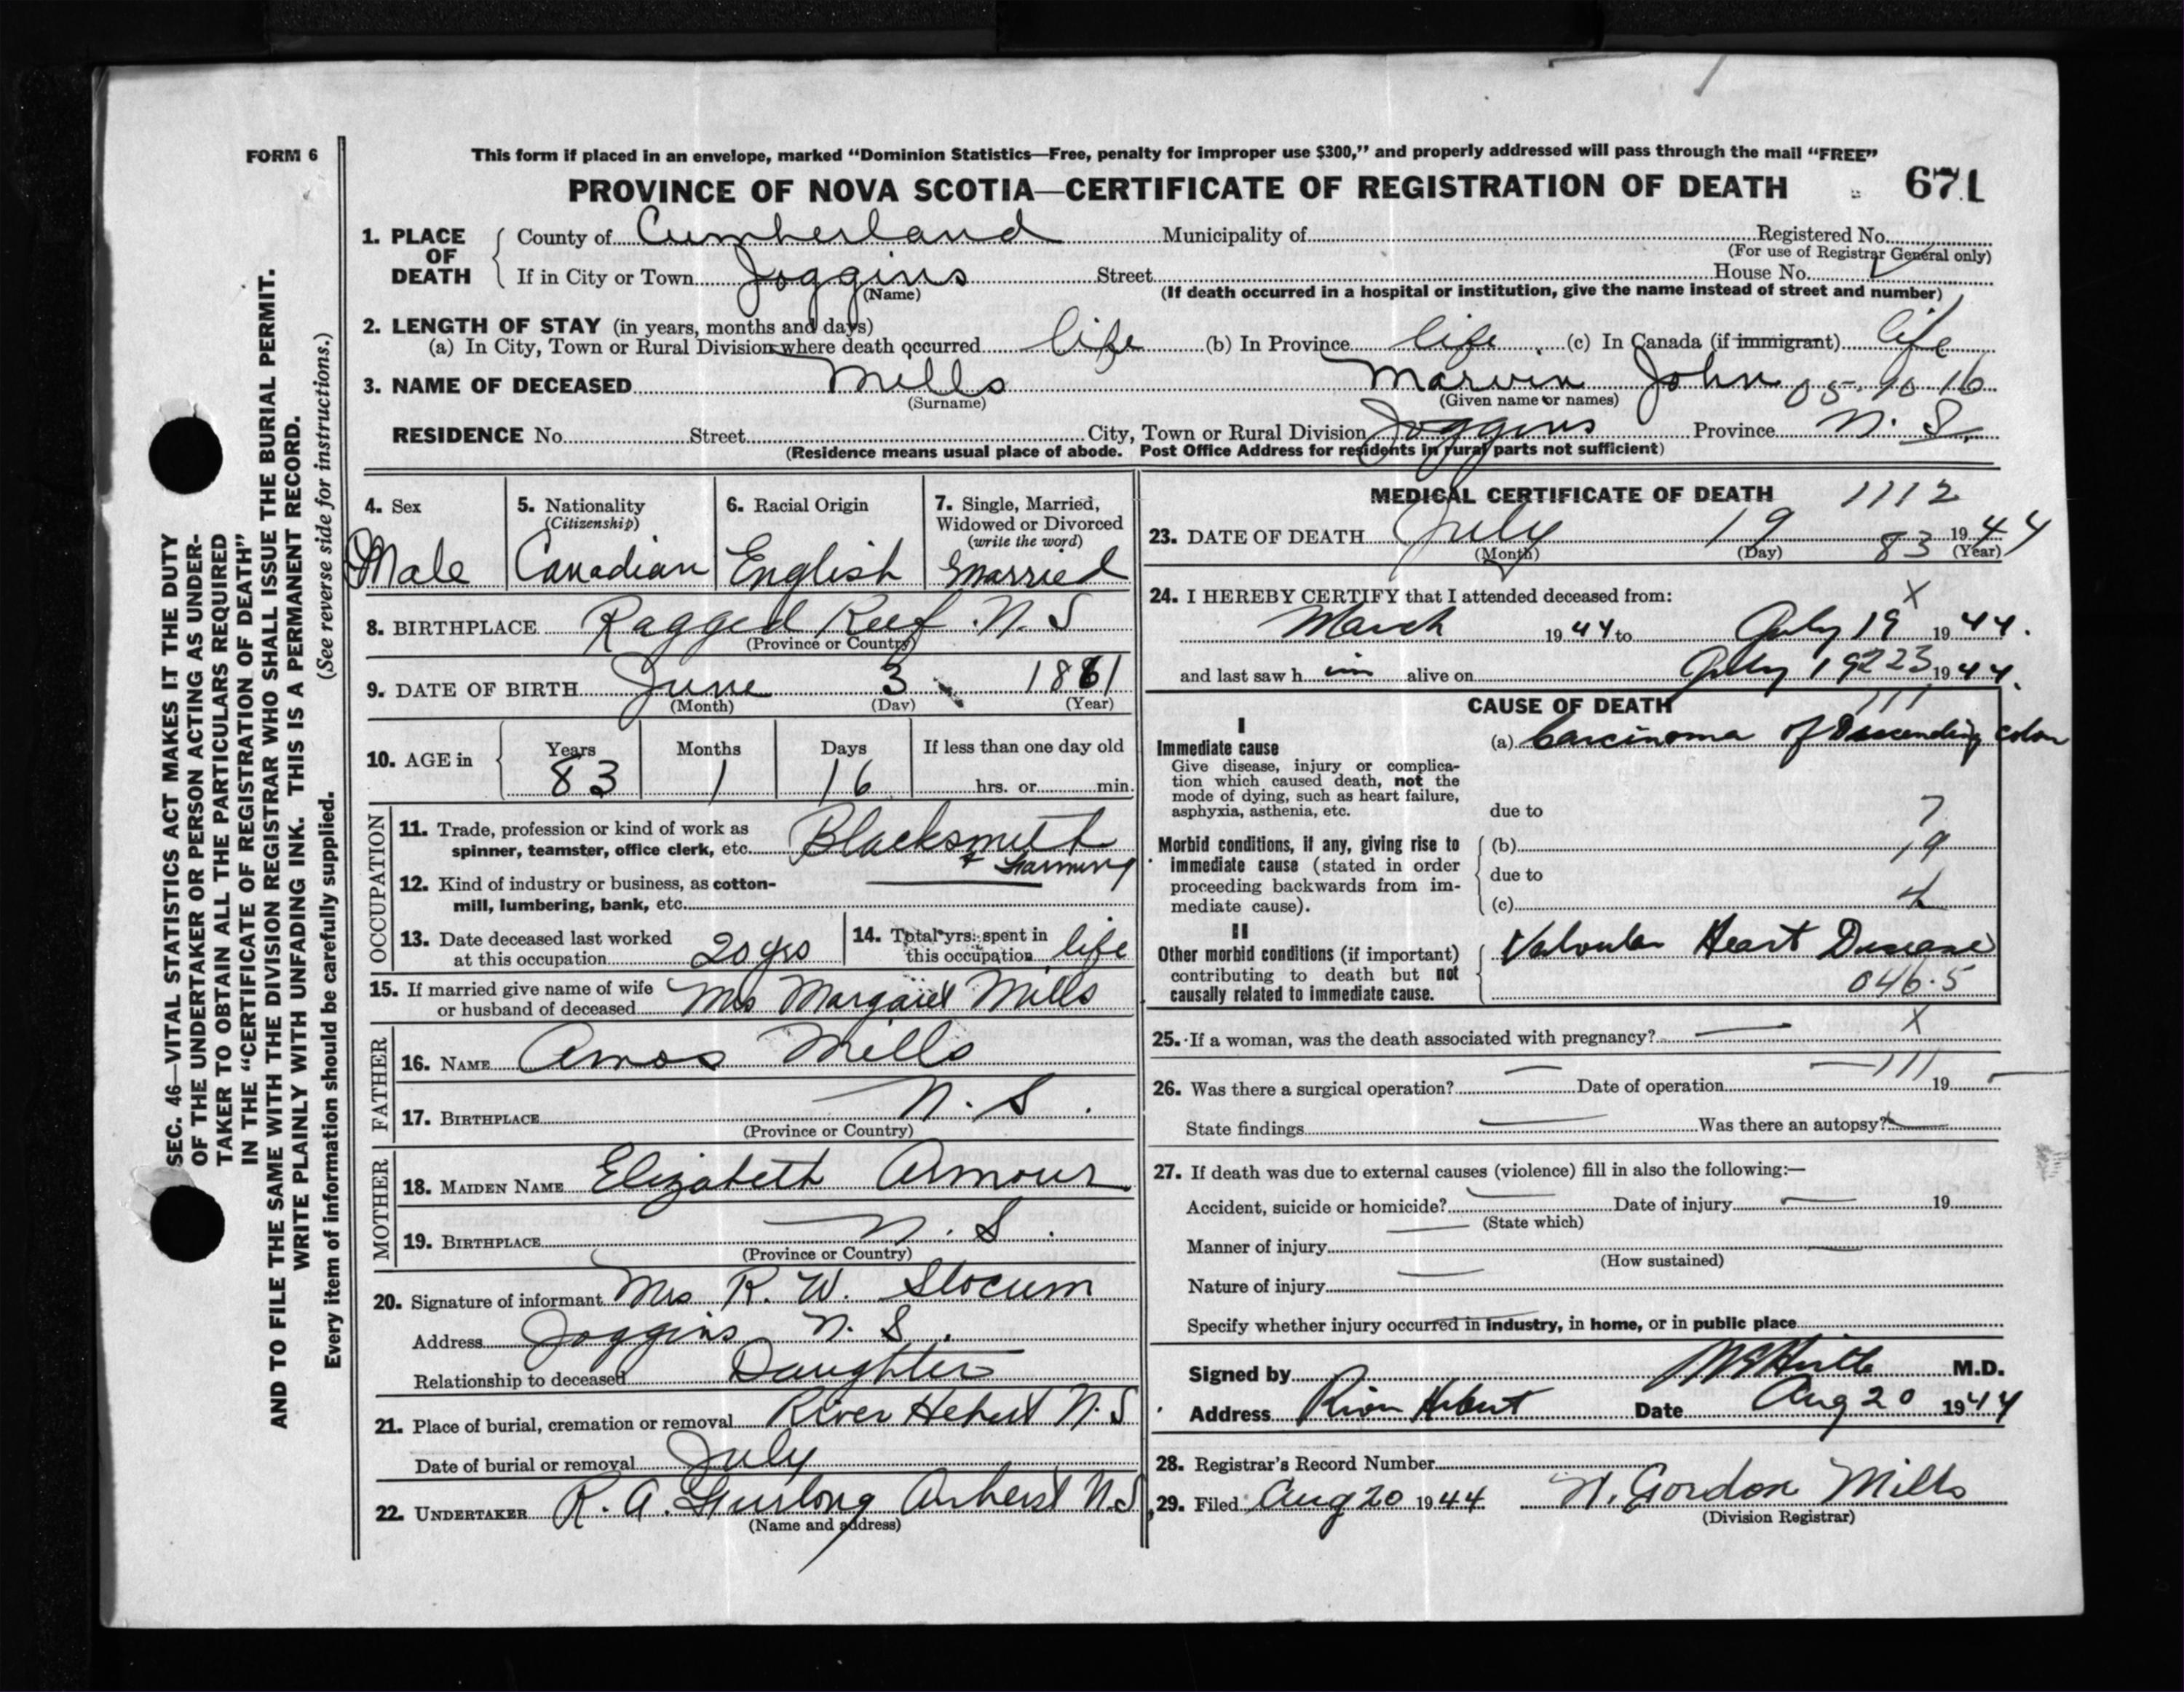 FORM 6
This form if placed in an envelope, marked “Dominion Statistics—Free, penalty for improper use $300,” and properly addressed will pass through the mail “FREE”
PROVINCE OF NOVA SCOTIA—CERTIFICATE OF REGISTRATION OF DEATH 671
SEC. 46—VITAL STATISTICS ACT MAKES IT THE DUTY
OF THE UNDERTAKER OR PERSON ACTING AS UNDER-
TAKER TO OBTAIN ALL THE PARTICULARS REQUIRED
IN THE “CERTIFICATE OF REGISTRATION OF DEATH”
AND TO FILE THE SAME WITH THE DIVISION REGISTRAR WHO SHALL ISSUE THE BURIAL PERMIT.
WRITE PLAINLY WITH UNFADING INK. THIS IS A PERMANENT RECORD.
Every item of information should be carefully supplied. (See reverse side for instructions.)
1. PLACE OF DEATH
County of Cumberland Municipality of Registered No.
(For use of Registrar General only)
If in City or Town Joggins Street House No.
(Name) (If death occurred in a hospital or institution, give the name instead of street and number)
2. LENGTH OF STAY (in years, months and days)
(a) In City, Town or Rural Division where death occurred life (b) In Province life (c) In Canada (if immigrant) life
3. NAME OF DECEASED Mills Marvin John 05-10-16
(Surname) (Given name or names)
RESIDENCE No. Street City, Town or Rural Division Joggins Province N. S.
(Residence means usual place of abode. Post Office Address for residents in rural parts not sufficient)
4. Sex
Male
5. Nationality
(Citizenship)
Canadian
6. Racial Origin
English
7. Single, Married,
Widowed or Divorced
(write the word)
Married
8. BIRTHPLACE Ragged Reef N. S
(Province or Country)
9. DATE OF BIRTH June 3 1861
(Month) (Day) (Year)
10. AGE in Years Months Days If less than one day old
83 1 16 hrs. or min.
OCCUPATION
11. Trade, profession or kind of work as
spinner, teamster, office clerk, etc. Blacksmith
& Farming
12. Kind of industry or business, as cotton-
mill, lumbering, bank, etc.
13. Date deceased last worked
at this occupation 20 yrs
14. Total yrs. spent in
this occupation life
15. If married give name of wife
or husband of deceased Mrs Margaret Mills
FATHER
16. NAME Amos Mills
17. BIRTHPLACE N. S.
(Province or Country)
MOTHER
18. MAIDEN NAME Elizabeth Armour
19. BIRTHPLACE N. S.
(Province or Country)
20. Signature of informant Mrs R. W. Slocum
Address Joggins N. S.
Relationship to deceased Daughter
21. Place of burial, cremation or removal River Hebert N. S
Date of burial or removal July
22. UNDERTAKER R. A. Furlong Amherst N. S
(Name and address)
MEDICAL CERTIFICATE OF DEATH 1112
23. DATE OF DEATH July 19 83 1944
(Month) (Day) (Year)
24. I HEREBY CERTIFY that I attended deceased from: X
March 1944 to July 19 1944.
and last saw him alive on July 19 223 1944.
CAUSE OF DEATH 111
I
Immediate cause
Give disease, injury or complica-
tion which caused death, not the
mode of dying, such as heart failure,
asphyxia, asthenia, etc.
(a) Carcinoma of Descending colon
due to 7
Morbid conditions, if any, giving rise to
immediate cause (stated in order
proceeding backwards from im-
mediate cause).
(b) 19
due to
(c) 4
II
Other morbid conditions (if important)
contributing to death but not
causally related to immediate cause.
Valvular Heart Disease
046.5
25. If a woman, was the death associated with pregnancy? — X
26. Was there a surgical operation? — Date of operation — 111 19 —
State findings — Was there an autopsy? —
27. If death was due to external causes (violence) fill in also the following:—
Accident, suicide or homicide? — Date of injury — 19
(State which)
Manner of injury —
(How sustained)
Nature of injury —
Specify whether injury occurred in industry, in home, or in public place
Signed by M.D.
Address River Hebert Date Aug 20 1944
28. Registrar's Record Number
29. Filed Aug 20 1944 Gordon Mills
(Division Registrar)